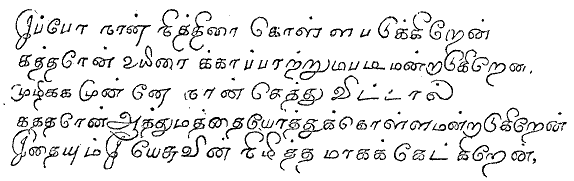 இப்போ நான் நித்திரை கொள்ள படுக்கிறேன்
கத்தரேன் உயிரை க்காப்பாற்றுமபடி மன்றடுகிறேன.
முழிகக முன்னே நான் செத்து விட்டால்
கததரேன் ஆத்துமத்தையேர்த்துக்கொள்ள மன்றடுகிறேன்
இதையும் இயேசுவின் நிமித்த மாகக் கேட்கிறேன்.